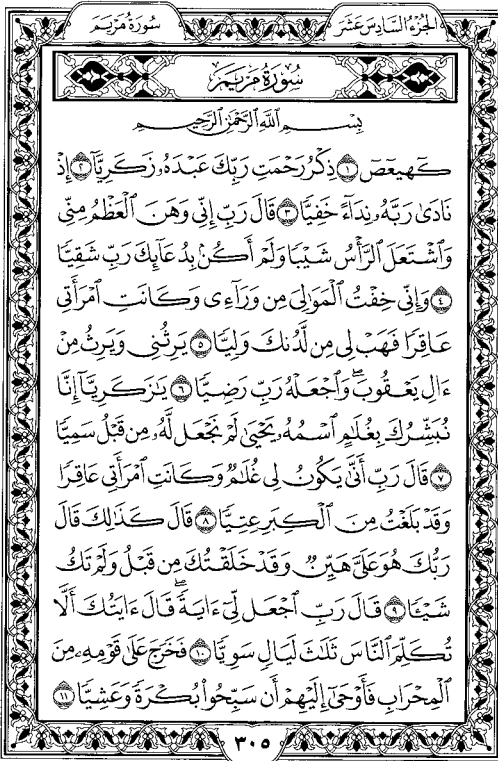 سُورَةُ مَرْيَم
الجُزْءُ السَّادِسَ عَشَر
سُورَةُ مَرْيَم
بِسْمِ ٱللَّهِ ٱلرَّحْمَٰنِ ٱلرَّحِيمِ
كٓهيعٓصٓ ١ ذِكْرُ رَحْمَتِ رَبِّكَ عَبْدَهُۥ زَكَرِيَّآ ٢ إِذْ
نَادَىٰ رَبَّهُۥ نِدَآءً خَفِيًّا ٣ قَالَ رَبِّ إِنِّى وَهَنَ ٱلْعَظْمُ مِنِّى
وَٱشْتَعَلَ ٱلرَّأْسُ شَيْبًا وَلَمْ أَكُنۢ بِدُعَآئِكَ رَبِّ شَقِيًّا
٤ وَإِنِّى خِفْتُ ٱلْمَوَٰلِىَ مِن وَرَآءِى وَكَانَتِ ٱمْرَأَتِى
عَاقِرًا فَهَبْ لِى مِن لَّدُنكَ وَلِيًّا ٥ يَرِثُنِى وَيَرِثُ مِنْ
ءَالِ يَعْقُوبَ ۖ وَٱجْعَلْهُ رَبِّ رَضِيًّا ٦ يَٰزَكَرِيَّآ إِنَّا
نُبَشِّرُكَ بِغُلَٰمٍ ٱسْمُهُۥ يَحْيَىٰ لَمْ نَجْعَل لَّهُۥ مِن قَبْلُ سَمِيًّا
٧ قَالَ رَبِّ أَنَّىٰ يَكُونُ لِى غُلَٰمٌ وَكَانَتِ ٱمْرَأَتِى عَاقِرًا
وَقَدْ بَلَغْتُ مِنَ ٱلْكِبَرِ عِتِيًّا ٨ قَالَ كَذَٰلِكَ قَالَ
رَبُّكَ هُوَ عَلَىَّ هَيِّنٌ وَقَدْ خَلَقْتُكَ مِن قَبْلُ وَلَمْ تَكُ
شَيْـًٔا ٩ قَالَ رَبِّ ٱجْعَل لِّىٓ ءَايَةً ۚ قَالَ ءَايَتُكَ أَلَّا
تُكَلِّمَ ٱلنَّاسَ ثَلَٰثَ لَيَالٍ سَوِيًّا ١٠ فَخَرَجَ عَلَىٰ قَوْمِهِۦ مِنَ
ٱلْمِحْرَابِ فَأَوْحَىٰٓ إِلَيْهِمْ أَن سَبِّحُوا۟ بُكْرَةً وَعَشِيًّا ١١
٣٠٥